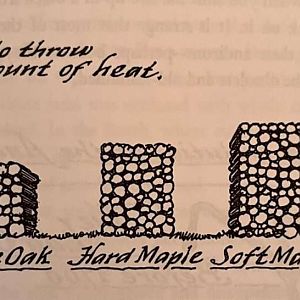 to throw
ount of heat.
Oak Hard Maple Soft Ma